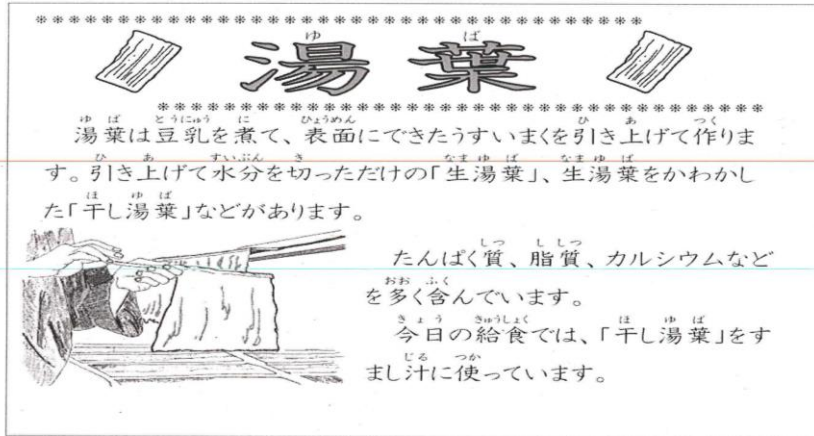 湯葉
湯葉は豆乳を煮て、表面にできたうすいまくを引き上げて作りま
す。引き上げて水分を切っただけの「生湯葉」、生湯葉をかわかし
た「干し湯葉」などがあります。
たんぱく質、脂質、カルシウムなど
を多く含んでいます。
今日の給食では、「干し湯葉」をす
まし汁に使っています。